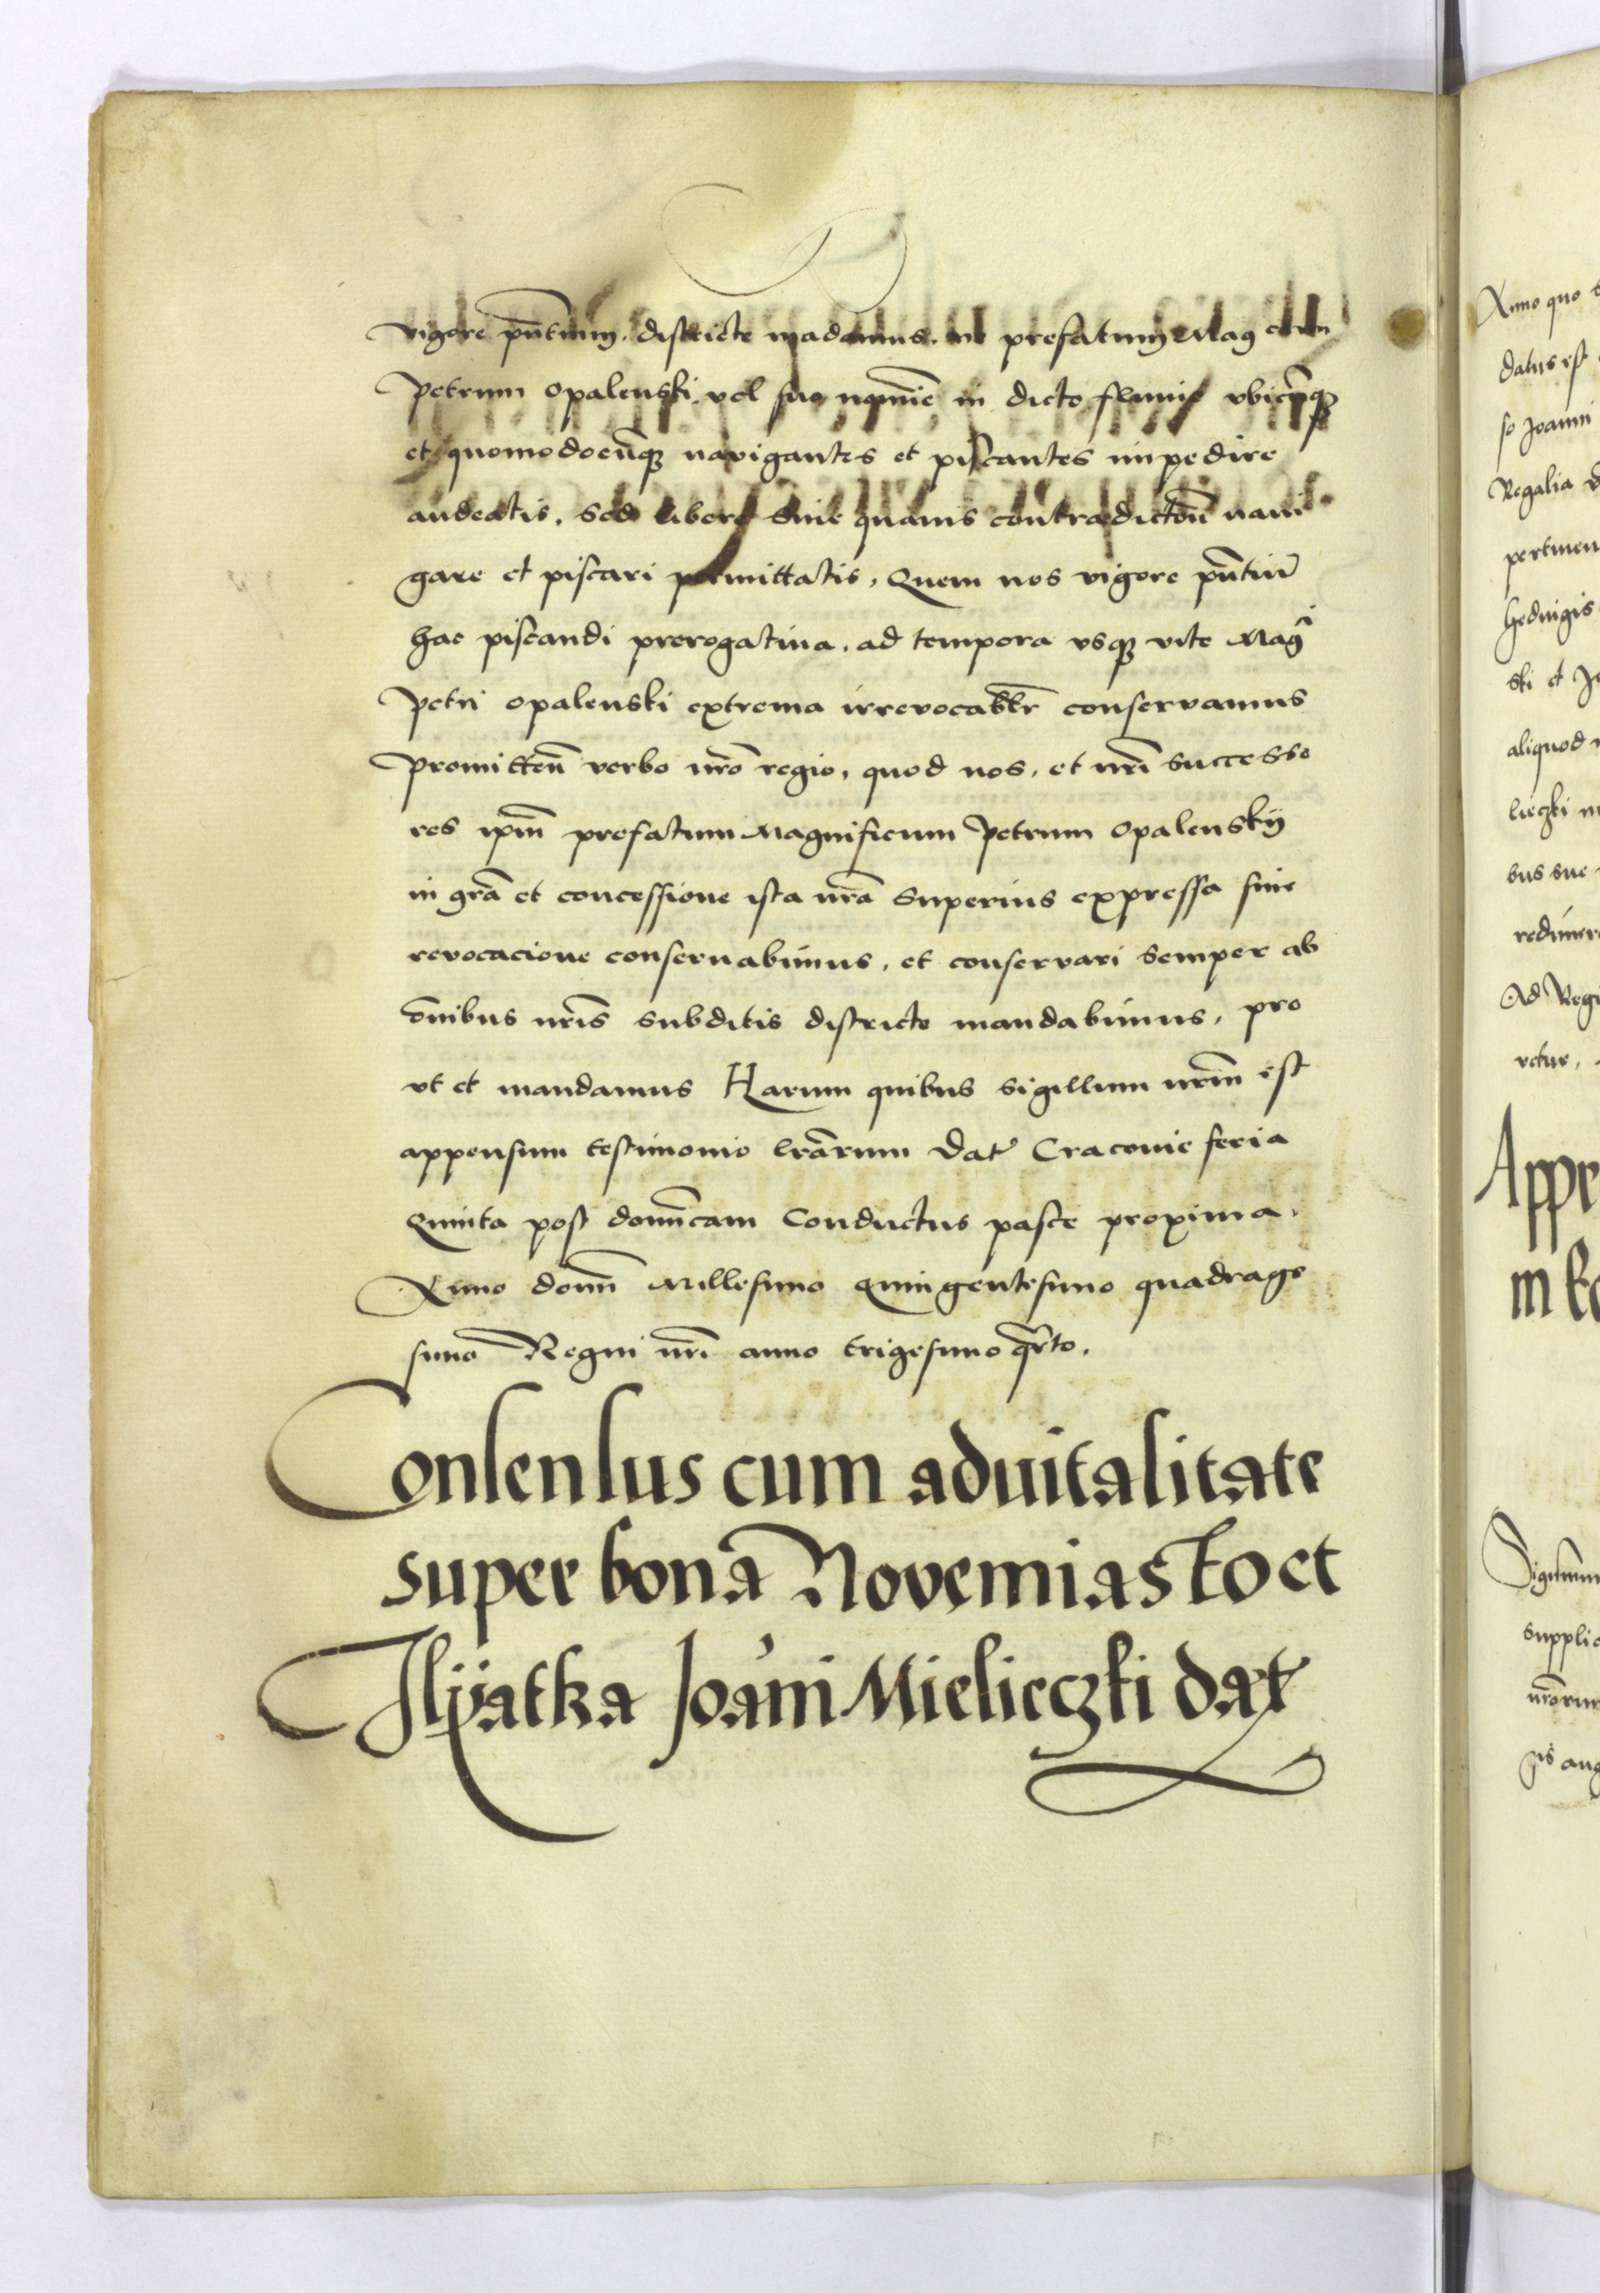 vigore pñtium. districte mādamus. ne prefatum Mag cum
Petrum Opalenski. vel suo nomīe in dicto fluuio vbicūqз
et quomodocūqз navigantes et piscantes impedire
audeatis. Sed libere sine quauis contradictōn̄ naui
gare et piscari permittatis, Quem nos vigore pñtiū
hac piscandi prerogatiua. ad tempora vsqз vite Magci
Petri Opalenski extrema irrevocablr̄ conservamus
Promitten̄ verbo nr̄o regio, quod nos, et nr̄i Successo
res ipm̄ prefatum Magnificum Petrum Opalenskÿ
in gr̄a et concessione ista nr̄a Superius expressa sine
revocacione conseruabimus, et conservari Semper ab
ōnibus nr̄is Subditis districte mandabimus, pro
vt et mandamus Harum quibus Sigillum nr̄m est
appensum testimonio lrārum Dat Cracovie feria
Quinta post domīcam Conductus pasce proxima.
Anno domī Millesimo Quingentesimo quadrage
simo Regni nr̄i anno trigesimo q̄rto.
Consensus cum aduitalitate
super bona Novemiasto et
Ilÿatka Joāni Mielieczki dat
Anno quo
datus est
so Joanni
Regalia
pertinen
hedwigis
ski et
aliquod
lieczki
bus sue
Ad Regi
Appe
Sigismun
supplic